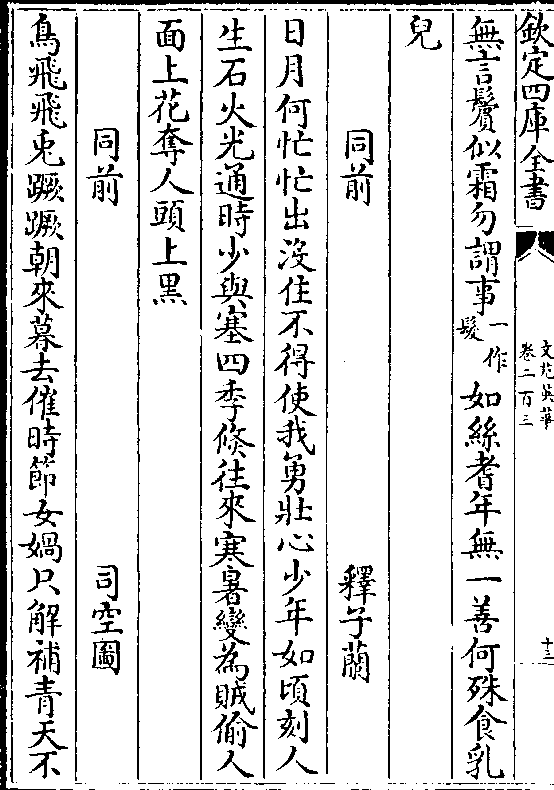 欽定四庫全書
文苑英華
卷二百三
十三
無言鬢似霜勿謂事一作髮如絲耆年無一善何殊食乳
兒
同前 釋子蘭
日月何忙忙出没住不得使我勇壯心少年如頃刻人
生石火光通時少與塞四季倐往來寒暑變為賊偷人
面上花奪人頭上黑
同前 司空圖
烏飛飛兎蹶蹶朝來暮去催時節女媧只解補青天不